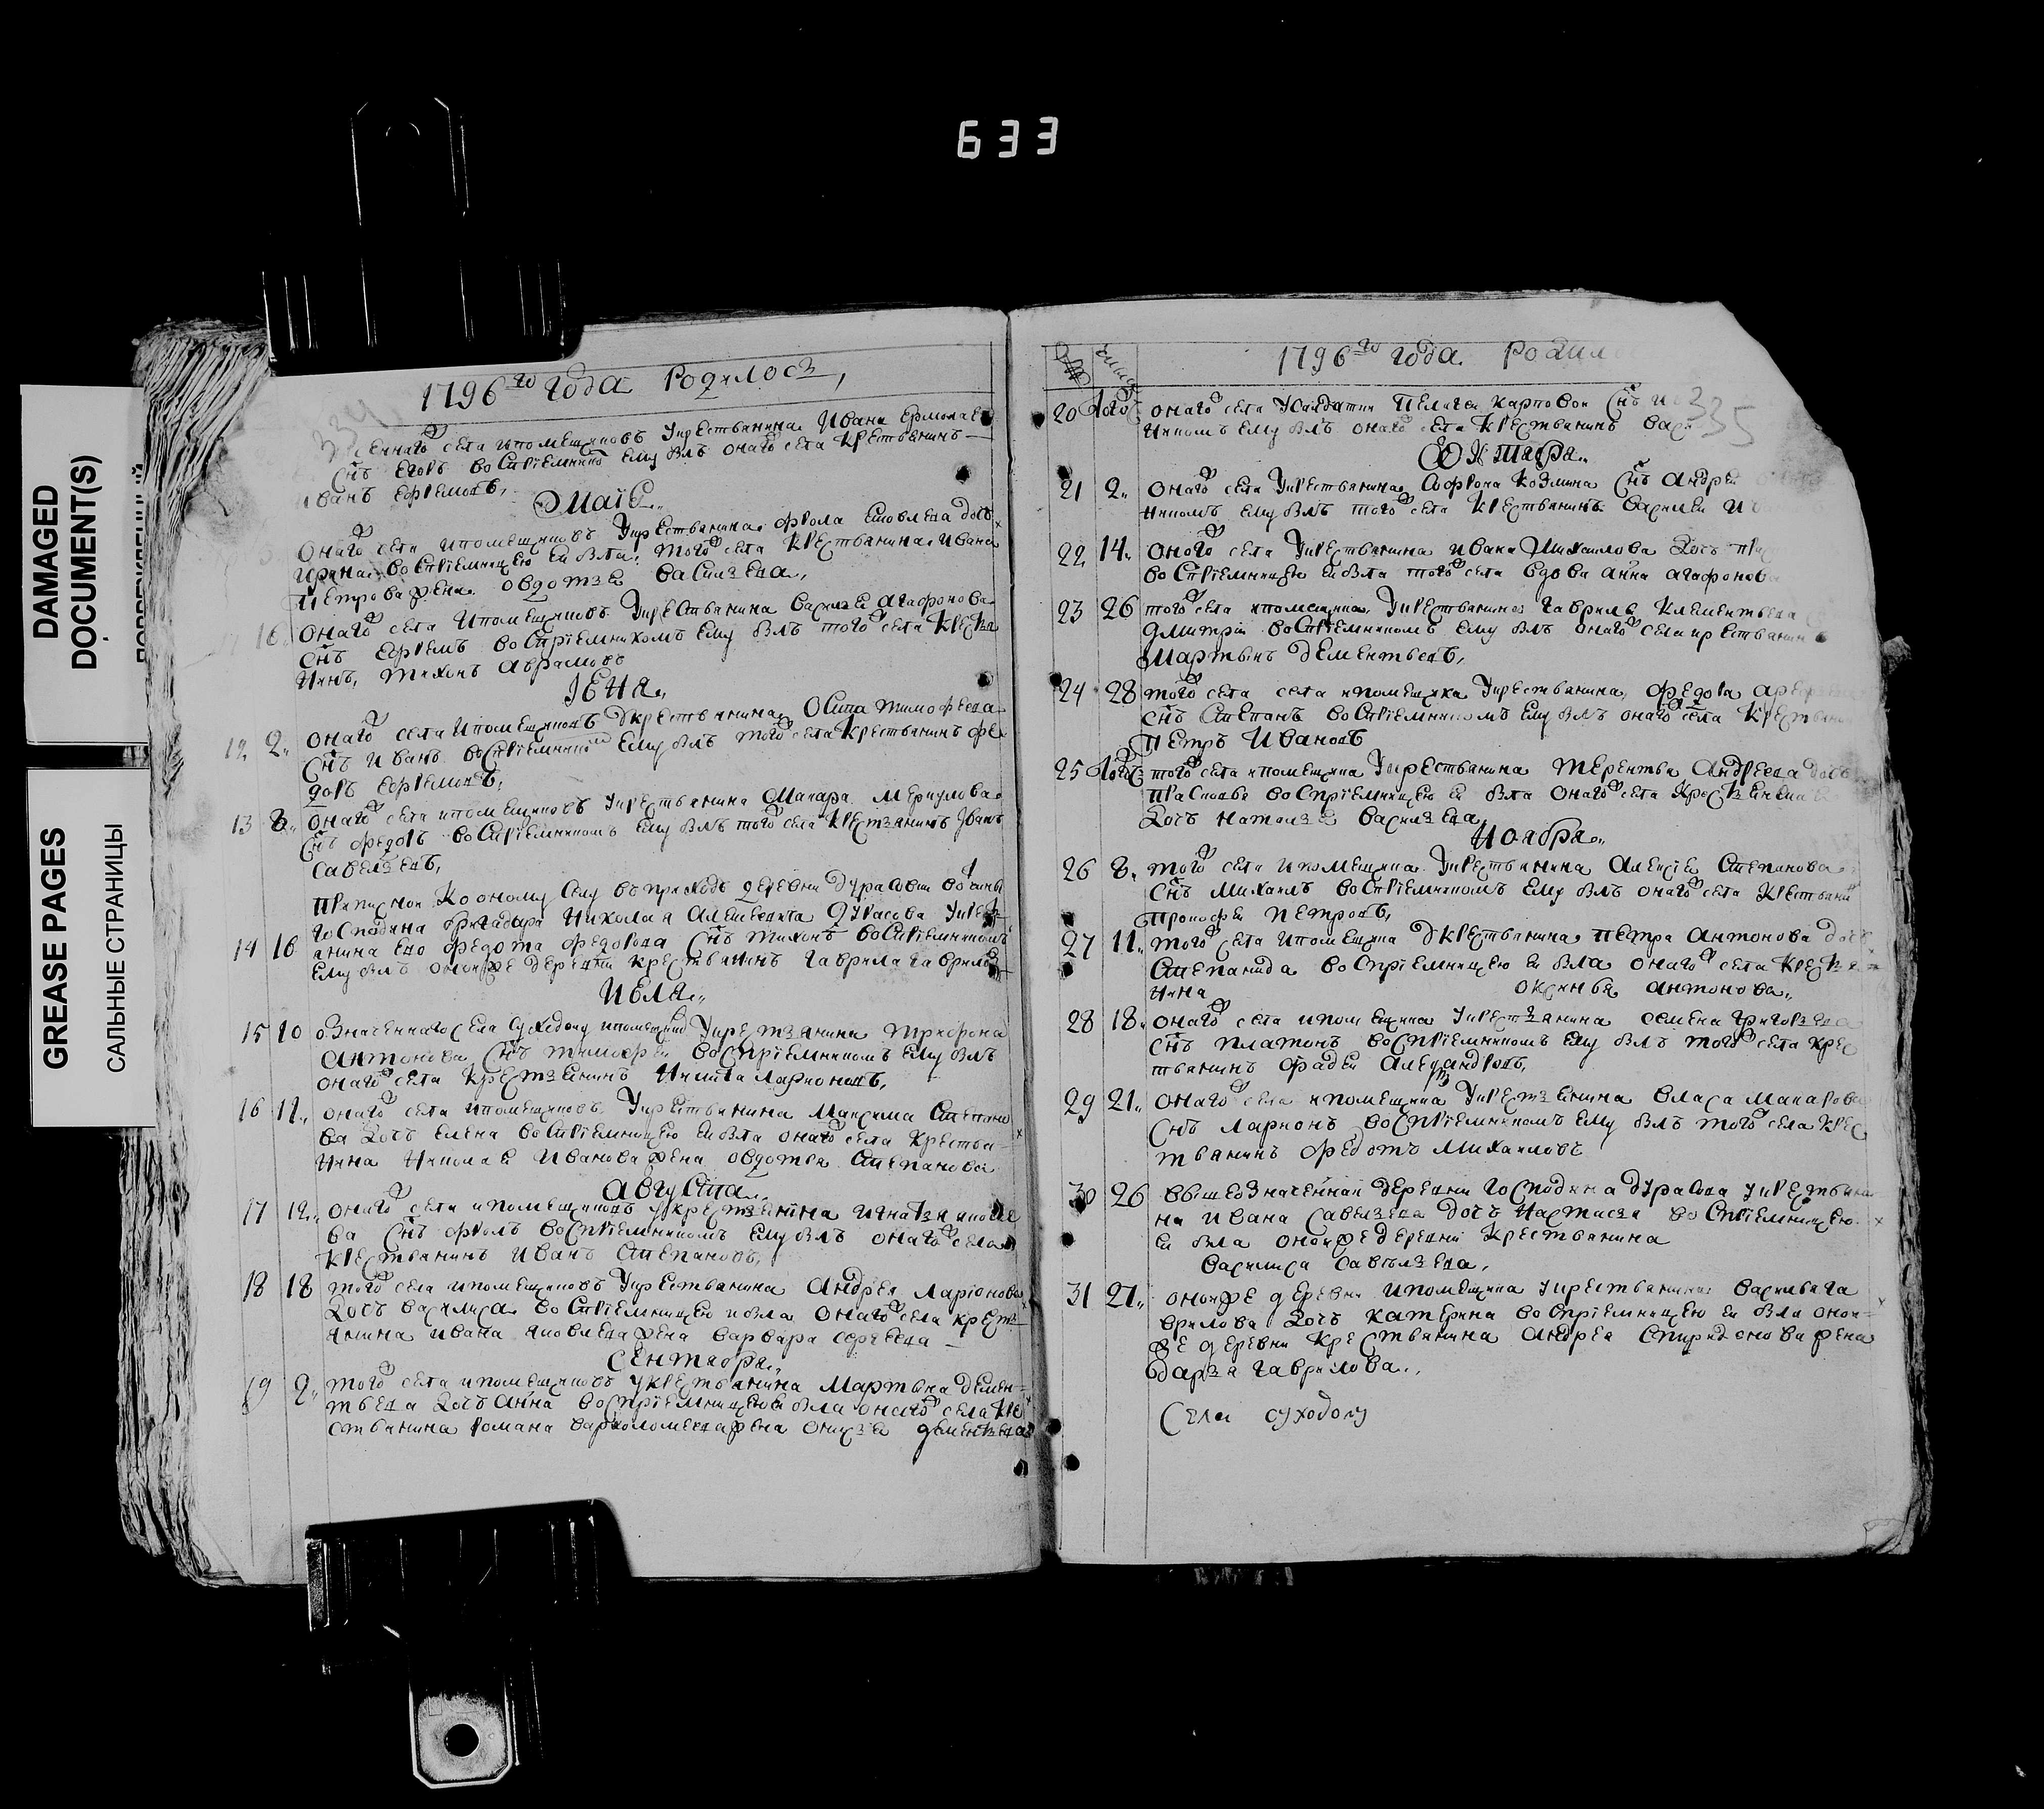 633
DAMAGED
DOCUMENT(S)
GREASE PAGES
САЛЬНЫЕ СТРАНИЦЫ
334
1796го года Родилось,
села ипомещиковъ Украстьянина Ивана Ермолаева
снъ Егоръ воспрїемнико ему былъ онаго села крестьянинъ
иванъ ефремовъ,
Маїя
онаго села ипомещиковъ Укрестьянина фрола дочь
ирина воспрїемницею ей была того села крестьянина ивана
петрова жена овдотья васильева,
16 онаго села ипомещиковъ Укрестьянина василья агафонова
снъ ефремъ воспрїемникомъ ему былъ того села крестья
нинъ, тихонъ аврамовъ
Іюня
12 2 онаго села ипомещиковъ Укрестьянина Осипа тимофеева
снъ иванъ воспрїемнико ему былъ того села крестьянинъ фе
доръ ефремовъ,
13 8 онаго села ипомещиковъ Укрестьянина Макара меркулова
снъ федоръ воспрїемникомъ ему былъ того села крестьянинъ Іванъ
савельевъ,
Приписной коономꙋ селу въ приходъ деревни дурасовки вочины
господина бригадира Николая Алексеевича дурасова укрест
14 16 янина ево федота федорова снъ тихонъ воспрїемникомъ
ему былъ онойже деревни крестьянинъ гаврила гавриловъ
Июля
15 10 означеннаго села Суходолу ипомещико Укрестьянина трифона
антонова снъ тимофей воспрїемникомъ ему былъ
онаго села крестьянинъ Никита ларионовъ,
16 11 онаго села ипомещиковъ Укрестьянина Максима степано
ва дочь елена воспрїемницею ей была онаго села крестья
нина Николая Иванова жена овдотья степанова
августа
17 12 онаго села ипомещиковъ укрестьянина игнатья яковле
ва снъ фролъ воспрїемникомъ ему былъ онаго села
крестьянинъ иванъ степановъ,
18 18 того села ипомещиковъ Укрестьянина Андрея ларїонова
дочь василиса воспрїемницею была онаго села крестъ
янина ивана яковлева жена варвара сергеева
сентября
19 2 того села ипомещиковъ укрестьянина мартына демен
тьева дочь анна воспрїемницею ей была онаго села кре
стьянина романа варфоломеева жена дементьева
335
1796го года Родил
20 того онаго села Усалдатки Пелагеи карповой снъ
никомъ ему былъ онаго села крестьянинъ вас
Октября
21 2 онаго села Укрестьянина софрона козмина снъ андрей
никомъ ему былъ того села крестьянинъ василей и
22 14 оного села Укрестьянина ивана михаилова дочь
воспрїемницею ей была того села вдова анна агафонова
23 26 того села ипомещика Укрестьянина гаврилы клементьева
дмитрїй воспрїемникомъ ему былъ онаго села крестьянин
мартынъ дементьевъ,
24 28 того села села ипомещика Укрестьянина федора
снъ степанъ воспрїемникомъ ему былъ онаго села крестьянин
петръ ивановъ
25 того того села ипомещика Укрестьянина терентья андреева дочь
прасковья воспрїемницею ей была онаго села
дочь наталья васильева
Ноября
26 8 того села ипомещика Укрестьянина алексея степанова
снъ михаилъ воспрїемникомъ ему былъ онаго села крестьяни
прокофей петровъ,
27 11 того села ипомещика Укрестьянина петра антонова доч
степанида воспрїемницею ей была онаго села крестья
нина оксинья антонова
28 18 онаго села ипомещика Укрестьянина семена григорьева
снъ платонъ воспрїемникомъ ему былъ того села крес
тьянинъ фадей александровъ,
29 21 онаго села ипомещика Укрестьянина власа макарова
снъ ларионъ воспрїемникомъ ему былъ того села крес
тьянинъ федотъ михаиловъ
30 26 вышеозначенной деревни господина дурасова укрестьяни
на ивана савельева дочь настасья воспрїемницею
ей была онойже деревни крестьянина
василиса савельева,
31 27 онойже деревни ипомещика укрестьянина василья га
врилова дочь катерина воспрїемницею ей была оной
же деревни крестьянина андрея спиридонова жена
дарья гаврилова
села суходолу